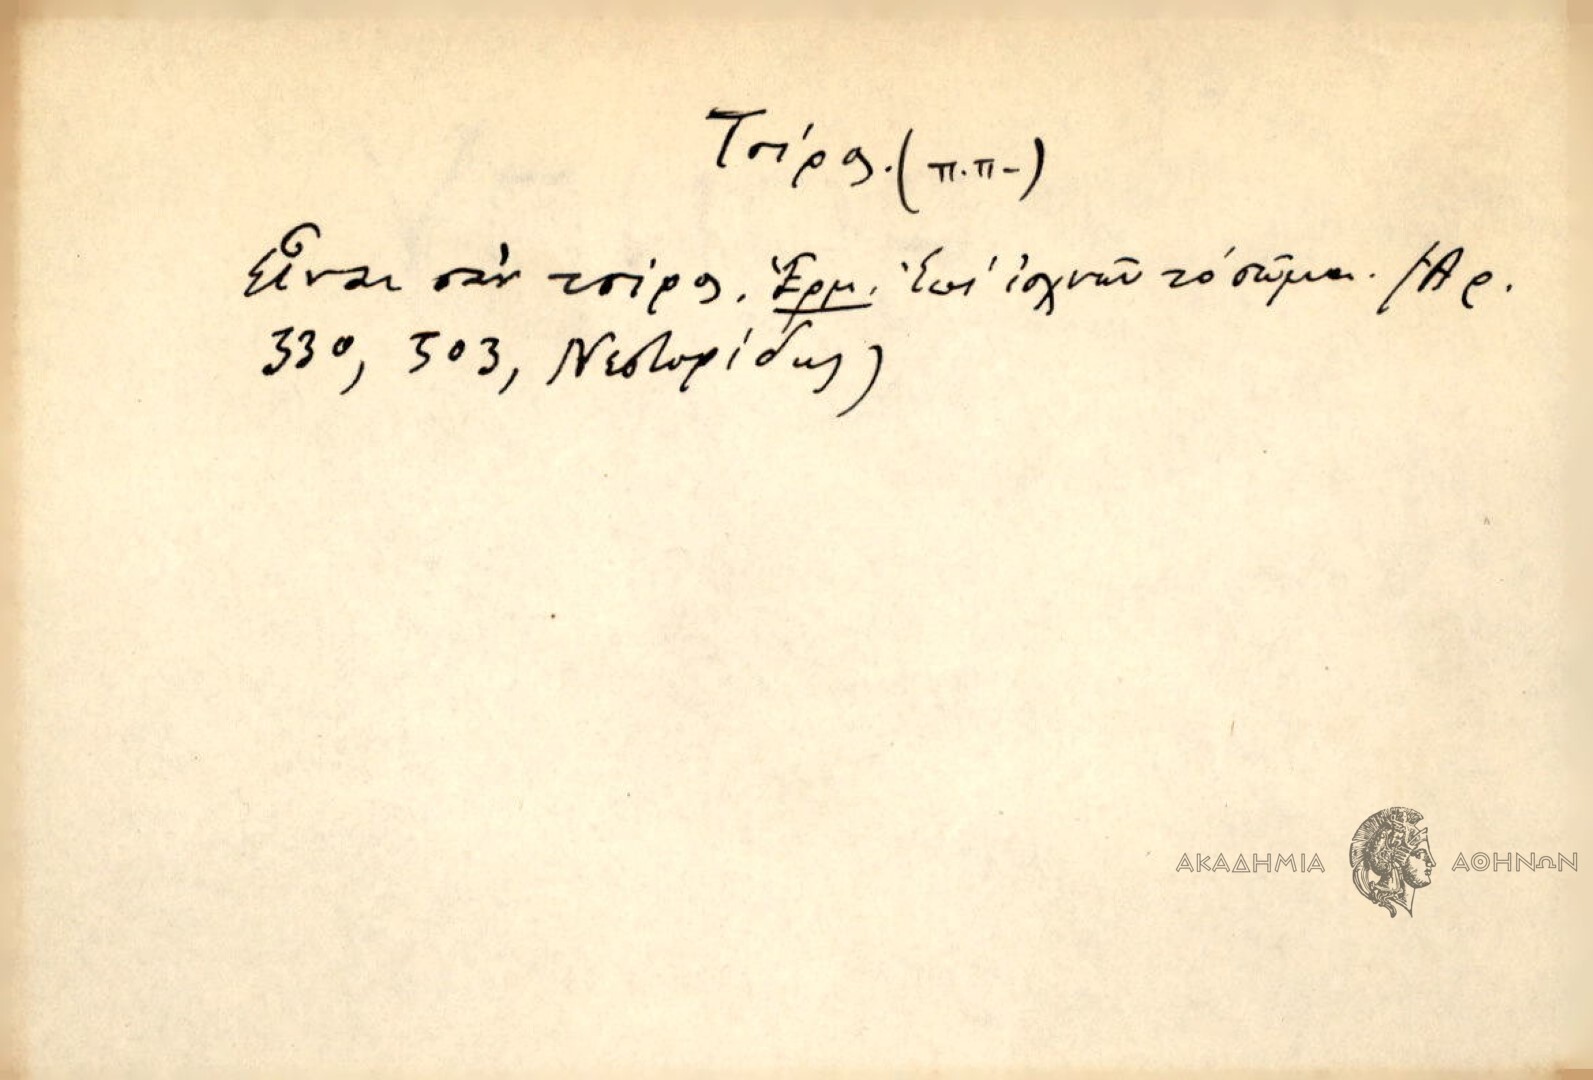 Τσίρος. (π.π-)
Εἶναι σὰν τσίρος. Ἑρμ. Ἐπί ἰσχνοῦ τό σῶμα. (Ἀρ.
330, 503, Νεστορίδης)
ΑΚΑΔΗΜΙΑ ΑΘΗΝΩΝ